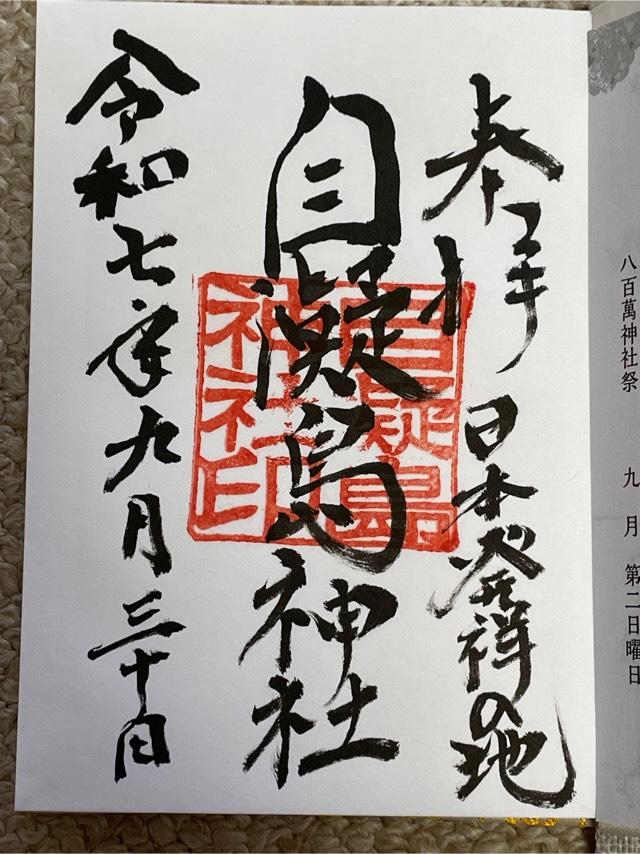 奉拝
日本発祥の地
自凝島神社
自凝島
神社印
令和七年九月三十日
八百萬神社祭 九月第二日曜日